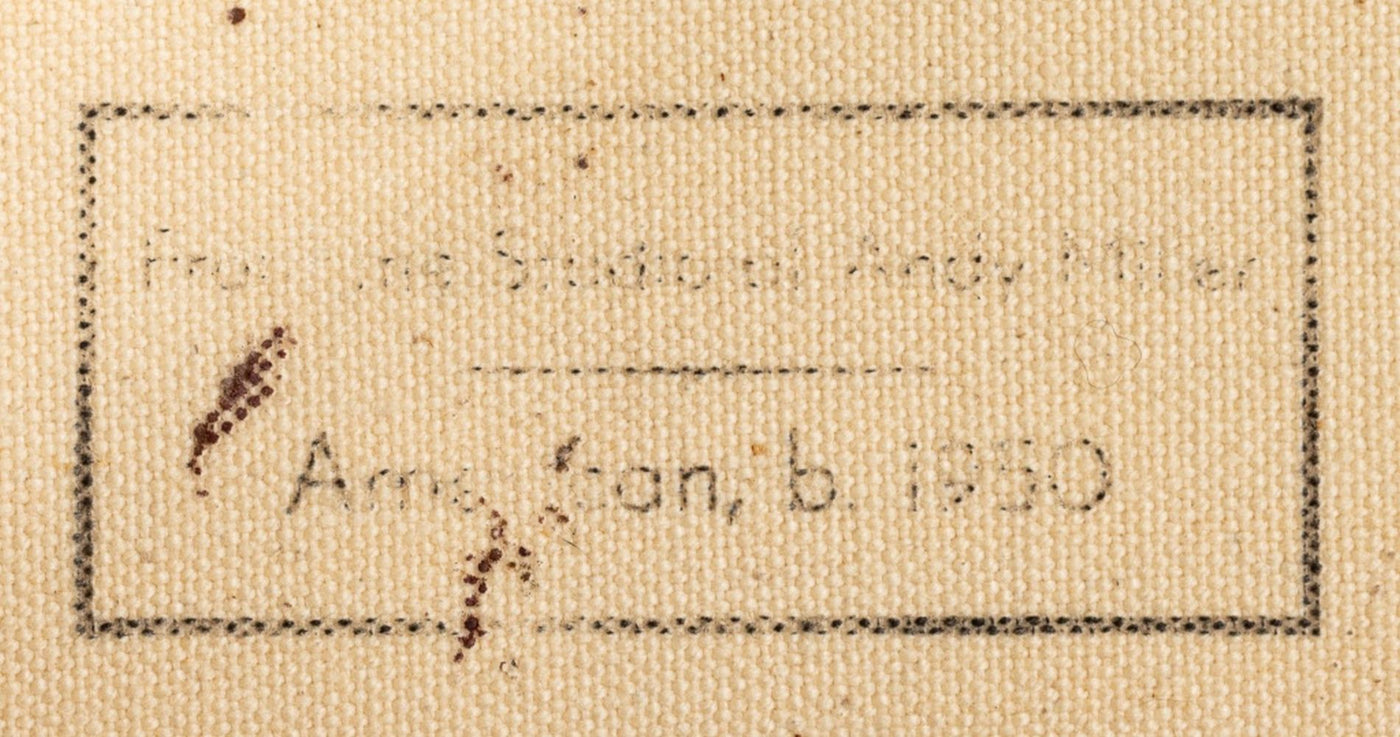 From the Studio of Andy Miller
American, b. 1950